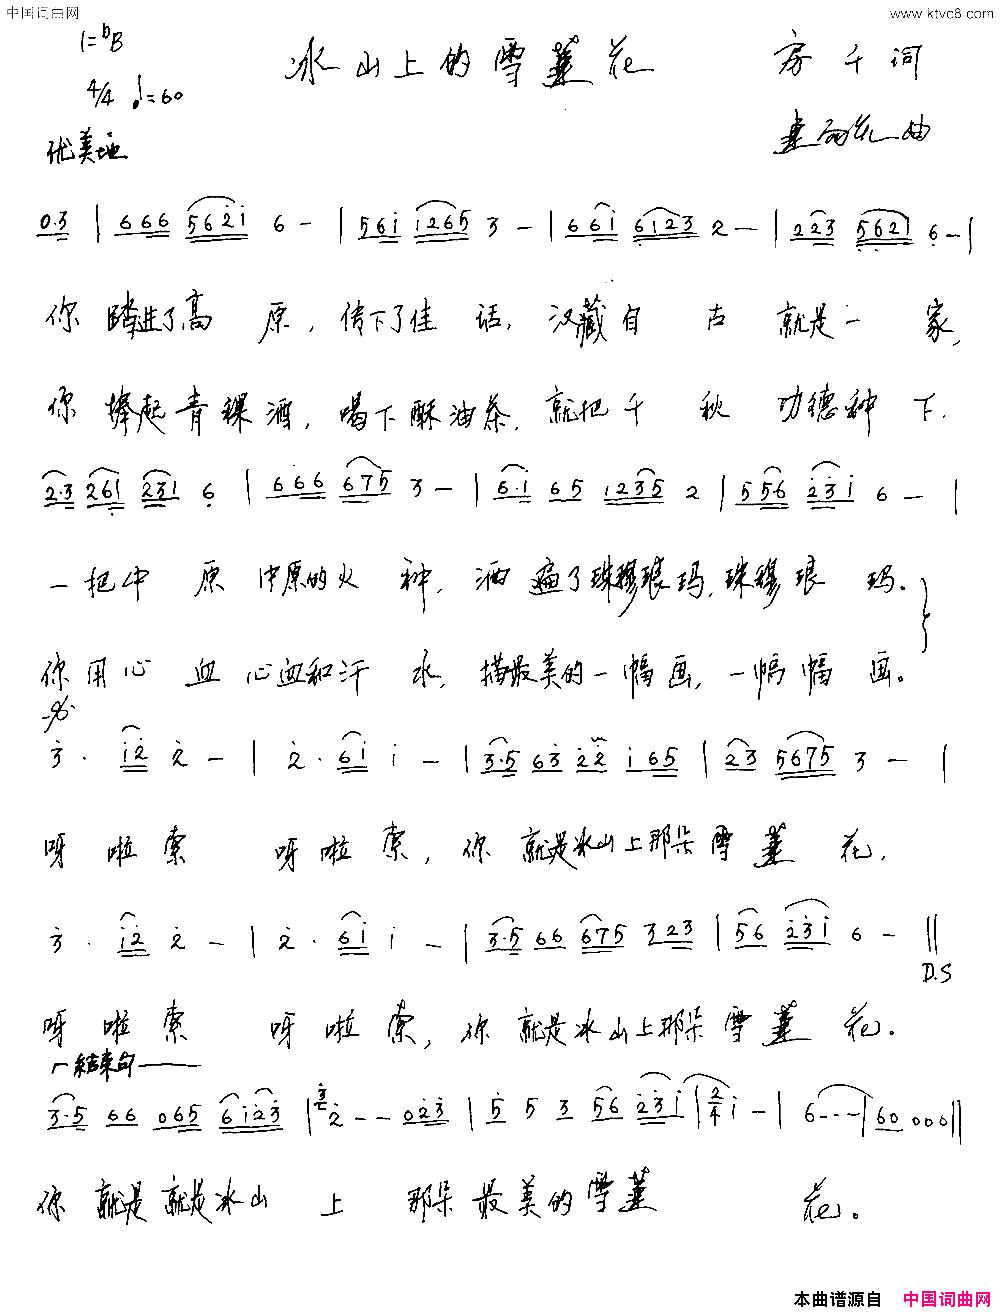 中国词曲网 www.ktvc8.com
1=bB 冰山上的雪莲花 房千词
4/4 ♩=60 曲
优美地
0·3 | 666 5621 6 – | 561 1265 3 – | 661 6123 2 – | 223 5621 6 – |
你踏进了高原,传下了佳话,汉藏自古就是一家,
你捧起青稞酒,喝下酥油茶,就把千秋功德种下.
2·3 261 231 6 | 666 675 3 – | 6·1 65 1235 2 | 55·6 231 6 – |
一把中原中原的火种,洒遍了珠穆琅玛,珠穆琅玛。
你用心血心血和汗水,描最美的一幅画,一幅幅画。
3· 12 2 – | 2· 61 1 – | 3·5 63 22 165 | 23 5675 3 – |
呀啦索 呀啦索,你就是冰山上那朵雪莲花,
3· 12 2 – | 2· 61 1 – | 3·5 66 675 323 | 56 231 6 – ‖
D.S
呀啦索 呀啦索,你就是冰山上那朵雪莲花.
结束句
3·5 66 065 6123 | 2 – – 023 | 5 5 3 56 231 | 2/4 1 – | 6 – – – | 60 000 ‖
你就是就是冰山上那朵最美的雪莲花。
本曲谱源自 中国词曲网